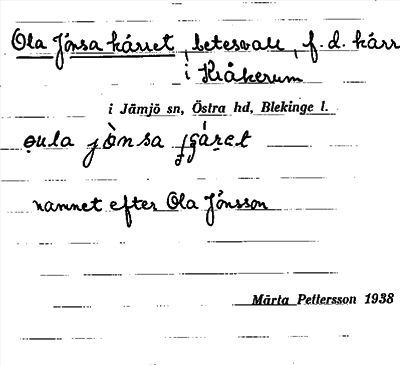 Ola Jönsa kärret, betesvall, f.d. kärr
i Kråkerum
i Jämjö sn, Östra hd, Blekinge l.
namnet efter Ola Jönsson
Märta Pettersson 1938